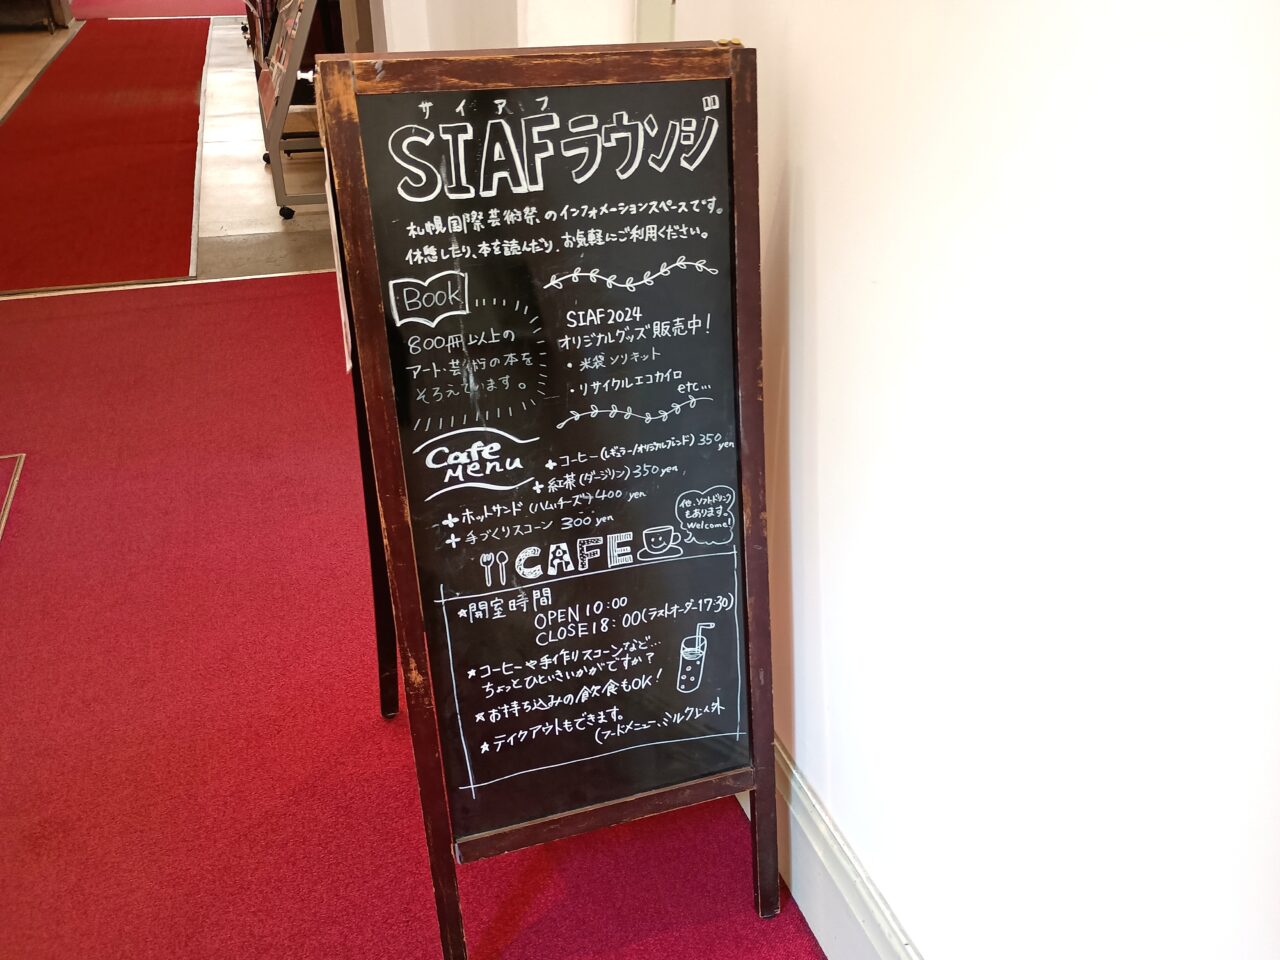 サイアフ
SIAFラウンジ
札幌国際芸術祭のインフォメーションスペースです。
休憩したり、本を読んだり、お気軽にご利用ください。
Book
800冊以上の
アート・芸術の本を
そろえています。
SIAF2024
オリジナルグッズ販売中!
・米袋ソリキット
・リサイクルエコカイロ
etc...
Cafe
Menu
+コーヒー(レギュラー/オリジナルブレンド)350yen
+紅茶(ダージリン)350yen
+ホットサンド(ハム&チーズ)400yen
+手づくりスコーン 300yen
他、ソフトドリンク
もあります。
Welcome!
CAFE
★開室時間
OPEN10:00
CLOSE18:00(ラストオーダー17:30)
★コーヒーや手作りスコーンなど…
ちょっとひといきいかがですか?
★お持ち込みの飲食もOK!
★テイクアウトもできます。
(フードメニュー、ミルク以外